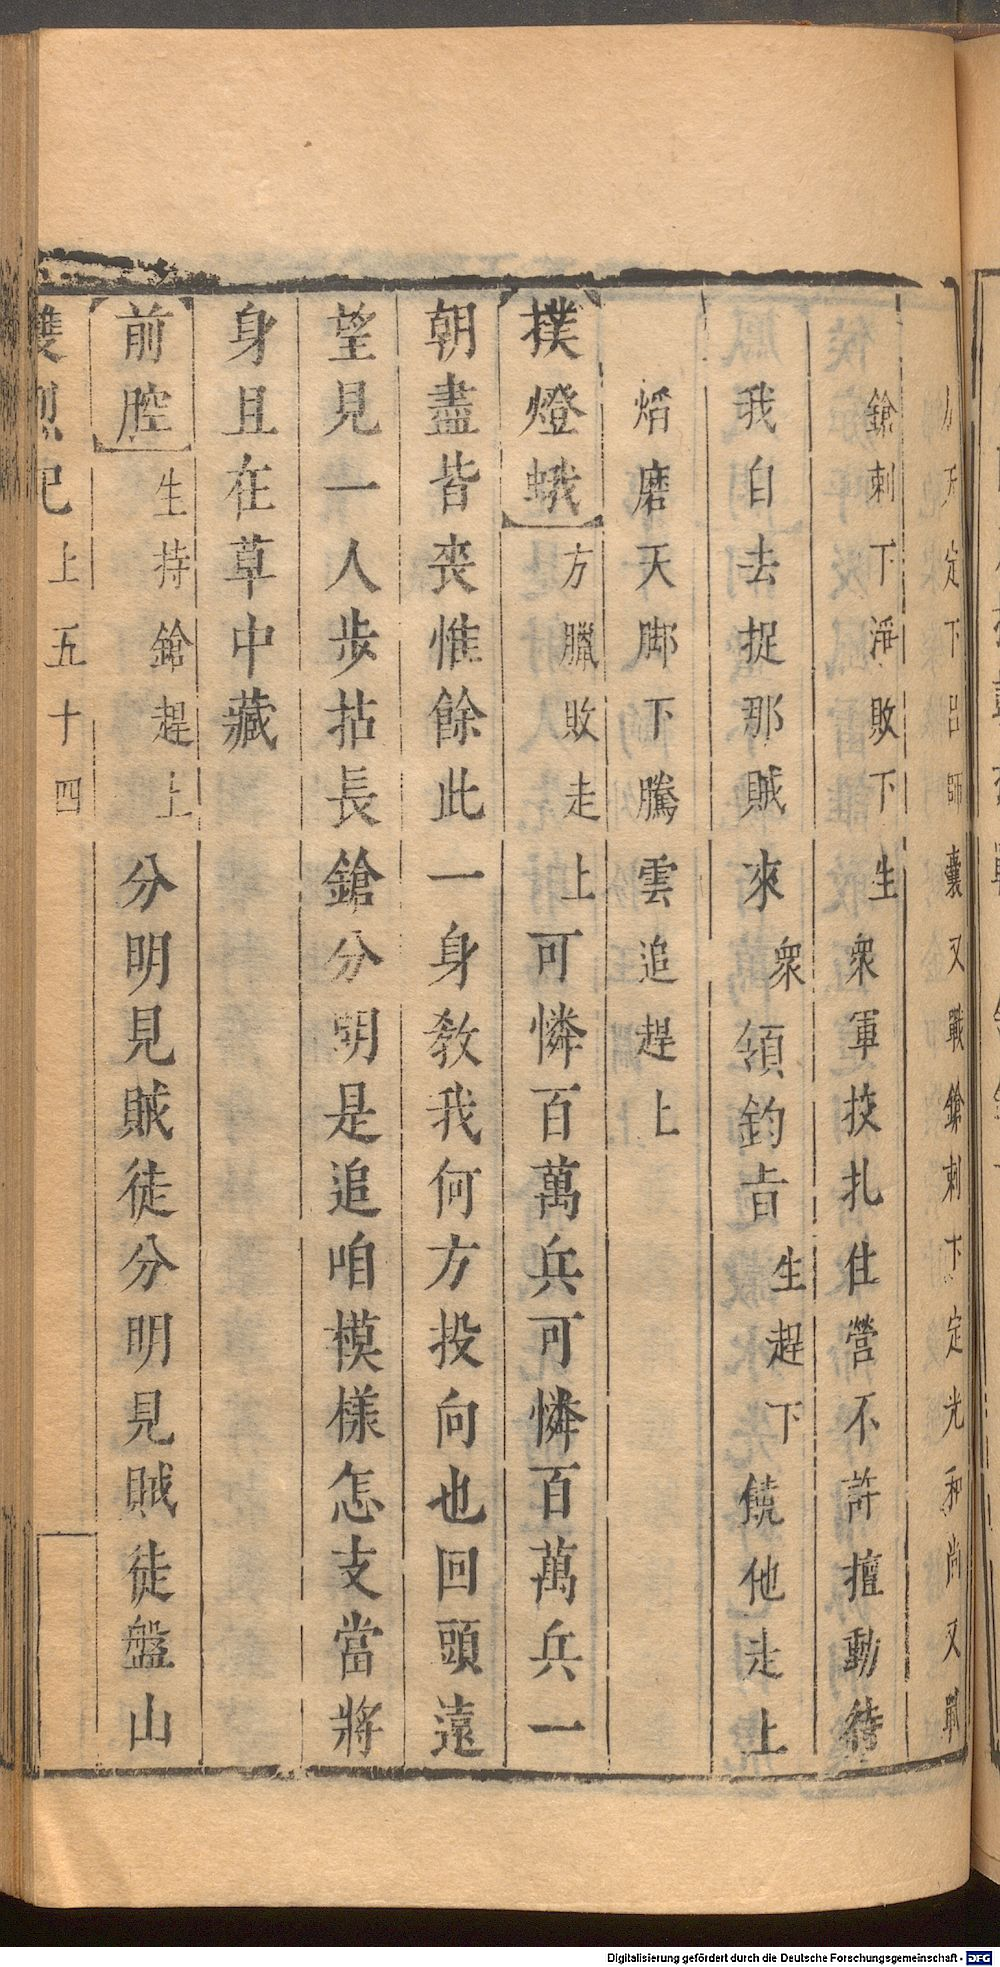 定下呂師囊又戰鎗刺下定光和尚又戰
鎗刺下淨敗下生衆軍挍扎住營不許擅動待
我自去捉那賊來衆領鈞旨生趕下饒他走上
焰磨天脚下騰雲追趕上
撲燈蛾方臘敗走上可憐百萬兵可憐百萬兵一
朝盡皆喪惟餘此一身教我何方投向也回頭遠
望見一人步拈長鎗分明是追咱模樣怎支當將
身且在草中藏
前腔生持鎗趕上分明見賊徒分明見賊徒盤山
雙烈記上五十四
Digitalisierung gefördert durch die Deutsche Forschungsgemeinschaft - DFG